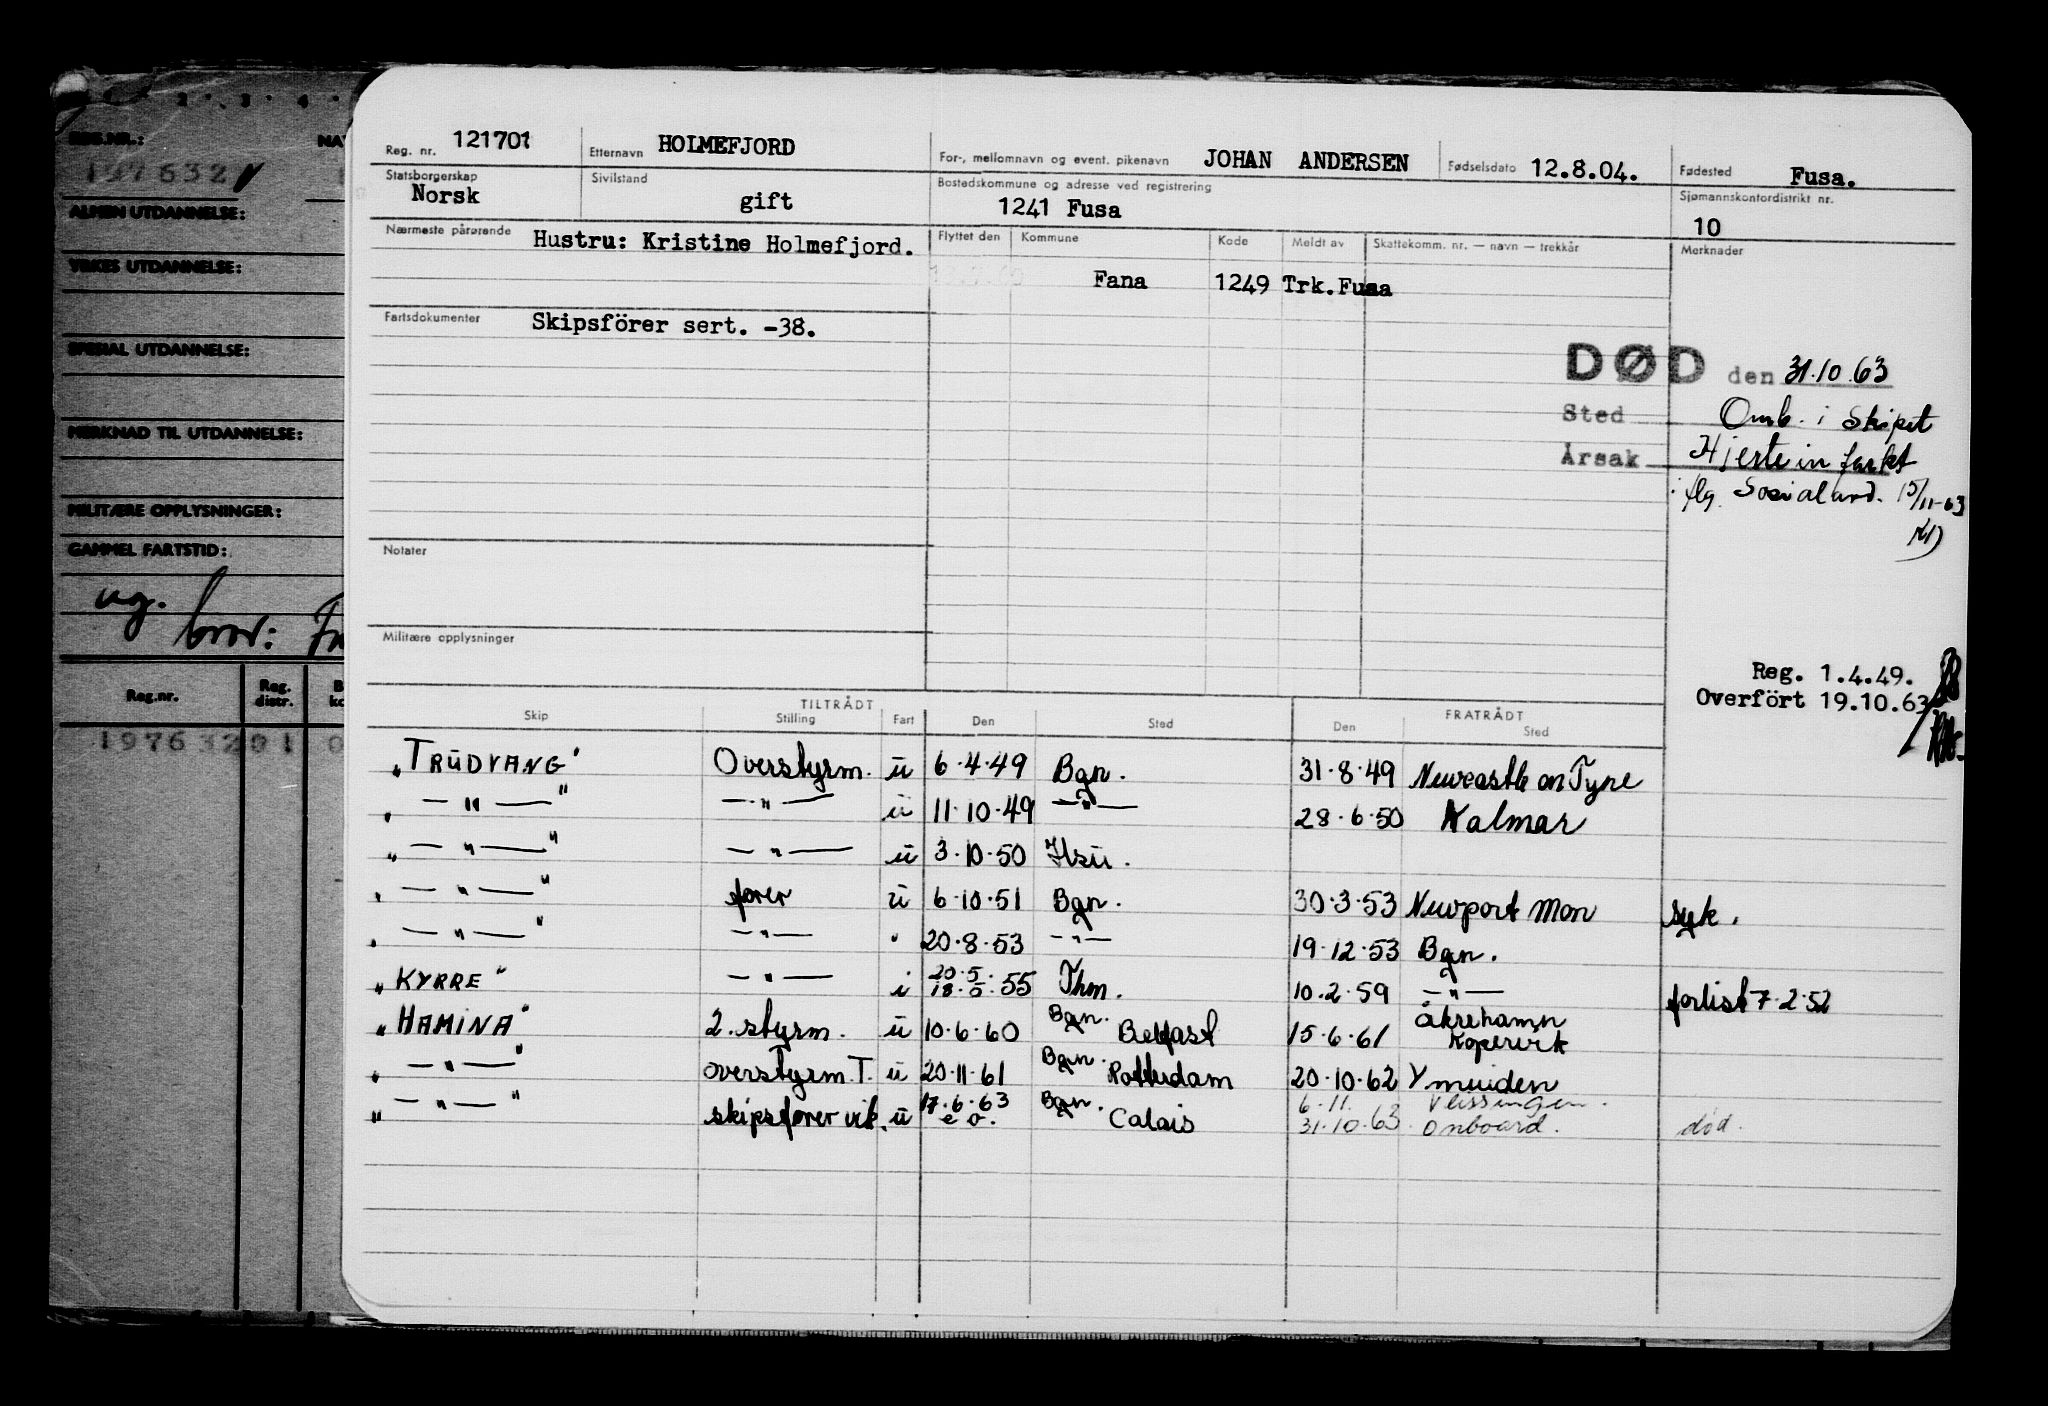 2 . 3 . 4
REG.NR.: NA
197632
ALMEN UTDANNELSE:
YRKES UTDANNELSE:
SPESIAL UTDANNELSE:
MERKNAD TIL UTDANNELSE:
MILITÆRE OPPLYSNINGER:
GAMMEL FARTSTID:
ug.
bror: Fr
Reg.nr. Reg. distr.
197632 01 0
Reg. nr. 121701 Etternavn HOLMEFJORD For-, mellomnavn og event. pikenavn JOHAN ANDERSEN Fødselsdato 12.8.04. Fødested Fusa.
Statsborgerskap Norsk Sivilstand gift Bostedskommune og adresse ved registrering 1241 Fusa Sjømannskontordistrikt nr. 10
Nærmeste pårørende Hustru: Kristine Holmefjord. Flyttet den Kommune Kode Meldt av Skattekomm. nr. — navn — trekkår Merknader
Fana 1249 Trk.Fusa
Fartsdokumenter Skipsförer sert. -38.
DØD den 31.10.63
Sted Omb. i skipet
Årsak Hjerteinfarkt
iflg. Sosialavd. 15/11-63
Notater
Militære opplysninger
Reg. 1.4.49.
Overfört 19.10.63
TILTRÅDT FRATRÅDT
Skip Stilling Fart Den Sted Den Sted
"TRUDVANG" Overstyrm. u 6.4.49 Bgn. 31.8.49 Newcastle on Tyne
" — " — " — " — u 11.10.49 — " — 28.6.50 Kalmar
" — " — " — " — u 3.10.50 Hsu.
" — " — " fører u 6.10.51 Bgn. 30.3.53 Newport Mon syk.
" — " — " — " — " 20.8.53 — " — 19.12.53 Bgn.
"KYRRE" — " — i 20.5. 18.5.55 Thm. 10.2.59 — " — forlist 7.2.52
"HAMINA" 2. styrm. u 10.6.60 Bgn. Belfast 15.6.61 Åkrehamn Kopervik
" — " — " overstyrm. T. u 20.11.61 Bgn. Rotterdam 20.10.62 Ymuiden
" — " — " skipsfører vik. u 17.6.63 e o. Bgn. Calais 6.11. Vlissingen.
31.10.63 onboard. død.